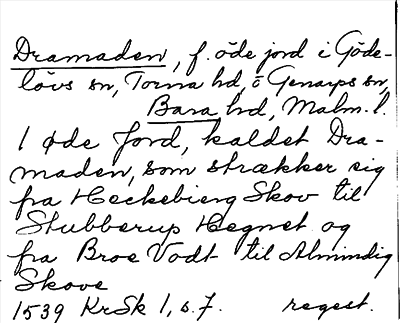 Dramaden, f. öde jord i Göde-
lövs sn, Torna hd, o Genarps sn,
Bara hd, Malm. l.
1 øde Jord, kaldet Dra-
maden, som strækker sig
fra Heckebierg Skov til
Stubberup Hegnet og
fra Broe Vadt til Almindig
Skove
1539 KrSk 1, s. 7. regest.